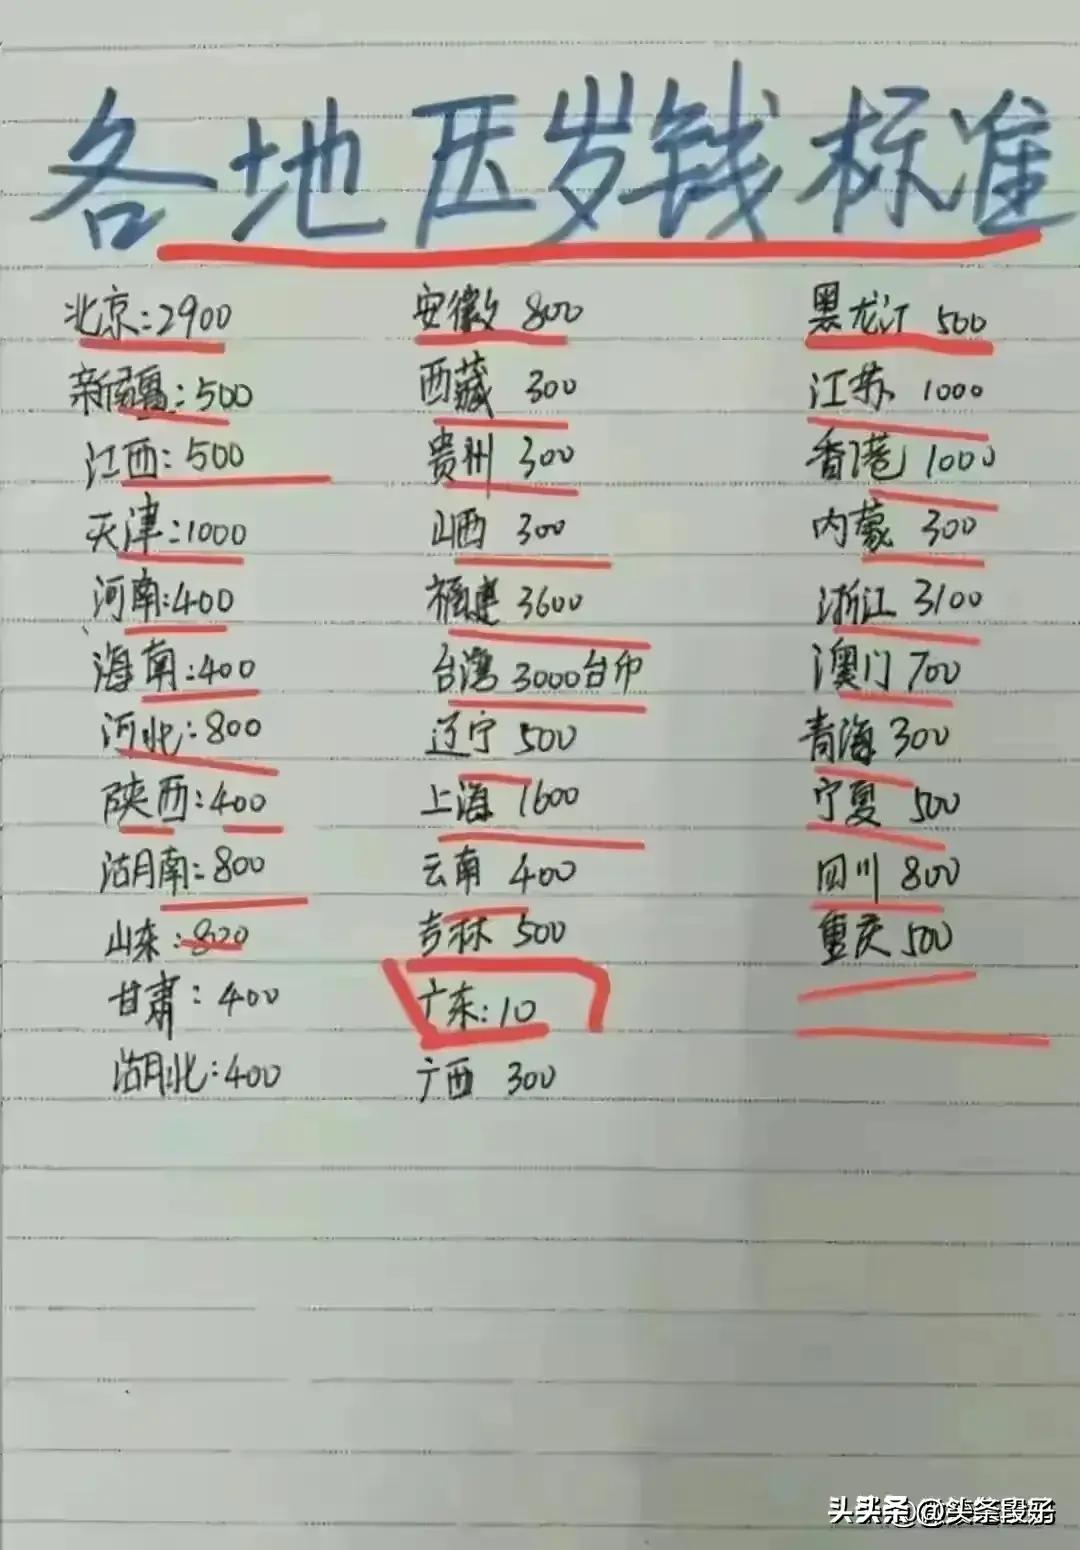 各地压岁钱标准
北京:2900
新疆:500
江西:500
天津:1000
河南:400
海南:400
河北:800
陕西:400
湖南:800
山东:800
甘肃:400
湖北:400
安徽 800
西藏 300
贵州 300
山西 300
福建 3600
台湾 3000台币
辽宁 500
上海 1600
云南 400
吉林 500
广东:10
广西 300
黑龙江 500
江苏 1000
香港 1000
内蒙 300
浙江 3100
澳门 700
青海 300
宁夏 500
四川 800
重庆 500
头条 @头条段子